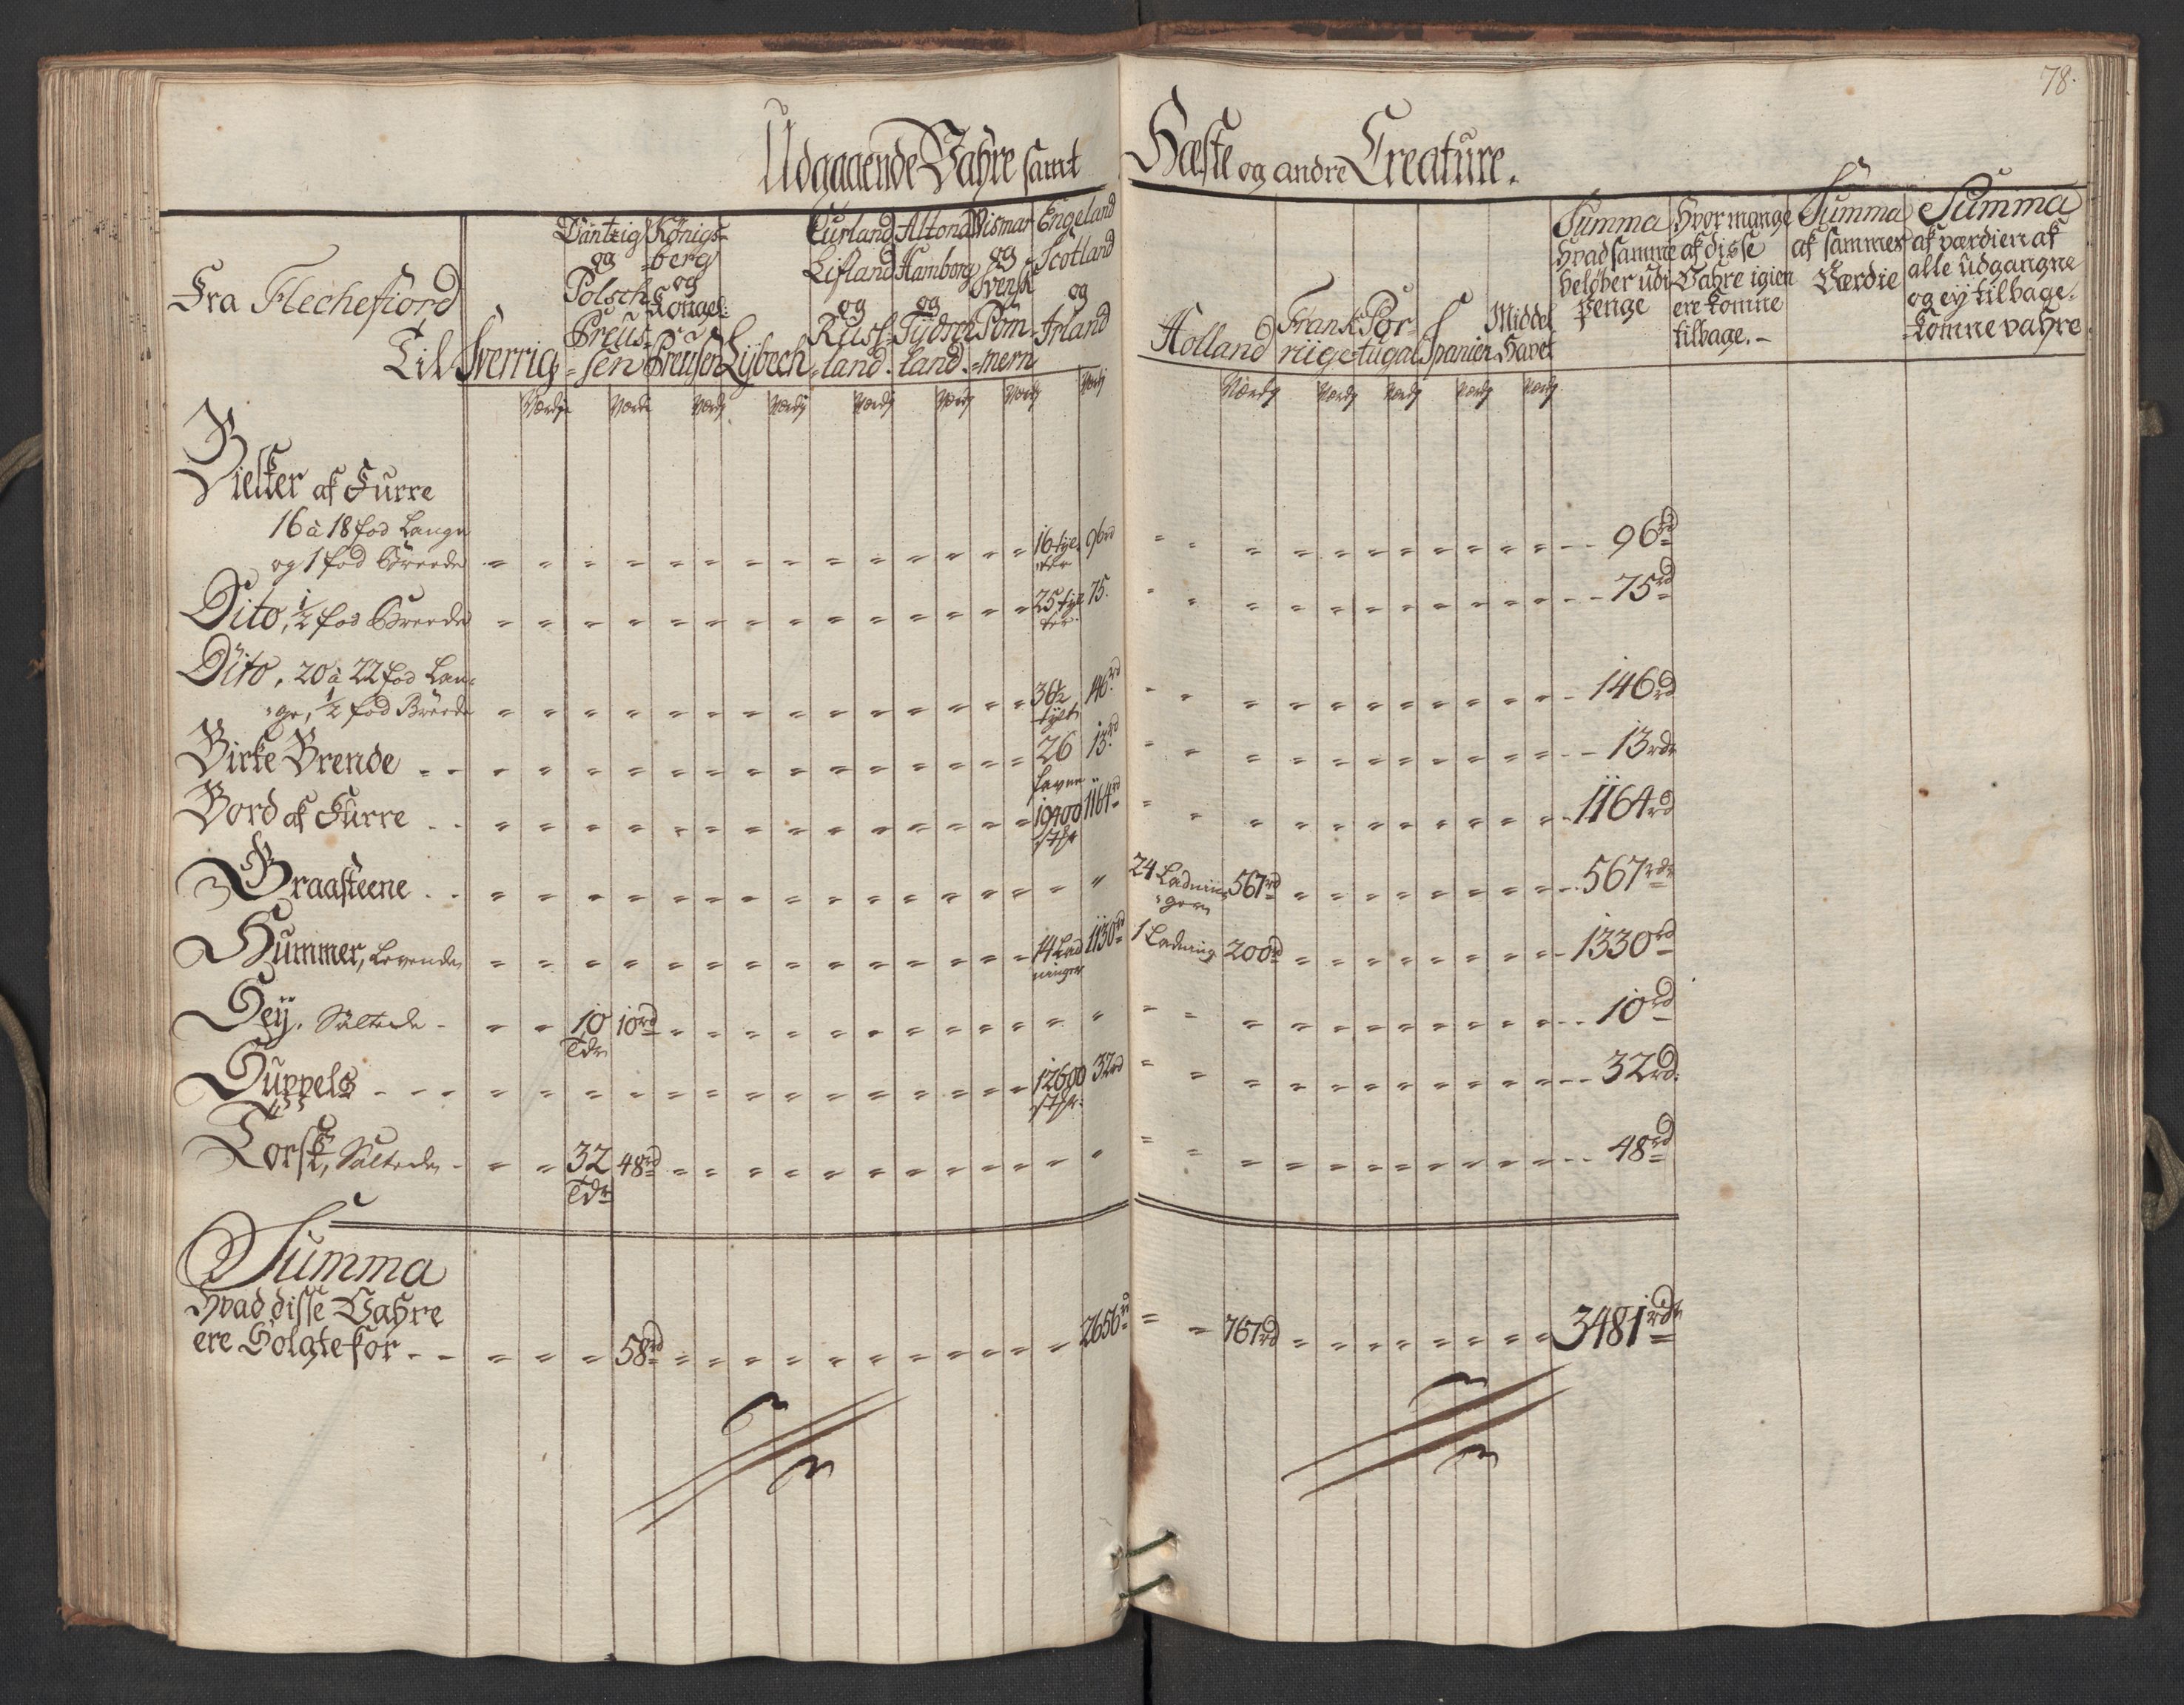 78.
Udgaaende Vahre samt Hæste og andre Creature.
Fra Flechefiord
Til Sverrig
Dantzig og Polsch Preus=sen
Königs=berg og Kongel: Preusen
Lybech
Curland Lifland og Rusl=land.
Altona Hamborg og Tydsch land.
Wismar og Svensk Pom=mern
Engeland Scotland og Irland
Holland
Frank riige
Por=tugal
Spanien
Middel Havet
Summa hvad samme beløber udi penge
Hvor mange af disse Vahre igien ere komne tilbage.
Summa af sammes Værdie
Summa af værdien af alle udgangne og ey tilbage=komne vahre
Værdj Værdj Værdj Værdj Værdj Værdj Værdj Værdj Værdj Værdj Værdj Værdj Værdj
Bielker af Furre
16 à 18 fod Lange
og 1 fod Breede 16 tyl=ter 96rd 96rd
Dito, ½ fod Breede 25 tyl=ter 75. 75rd
Dito, 20 à 22 fod Lan=
=ge, ½ fod Breede 36½ tylt 146rd 146rd
Birke Brende 26 favne 13rd 13rdr
Bord af Furre 19400 stkr 1164rd 1164rd
Graasteene 24 Ladnin=ger 567rd 567rdr
Hummer, Levende 14 Lad ninger 1130rd 1 Ladning 200rd 1330rd
Sey, Saltede 10 Tdr 10rd 10rd
Suppels 12600 stkr 32rd 32rd
Torsk, Saltede 32 Tdr 48rd 48rd
Summa
hvad disse Vahre
ere Solgte for 58rd 2656rd 767rd 3481rdr